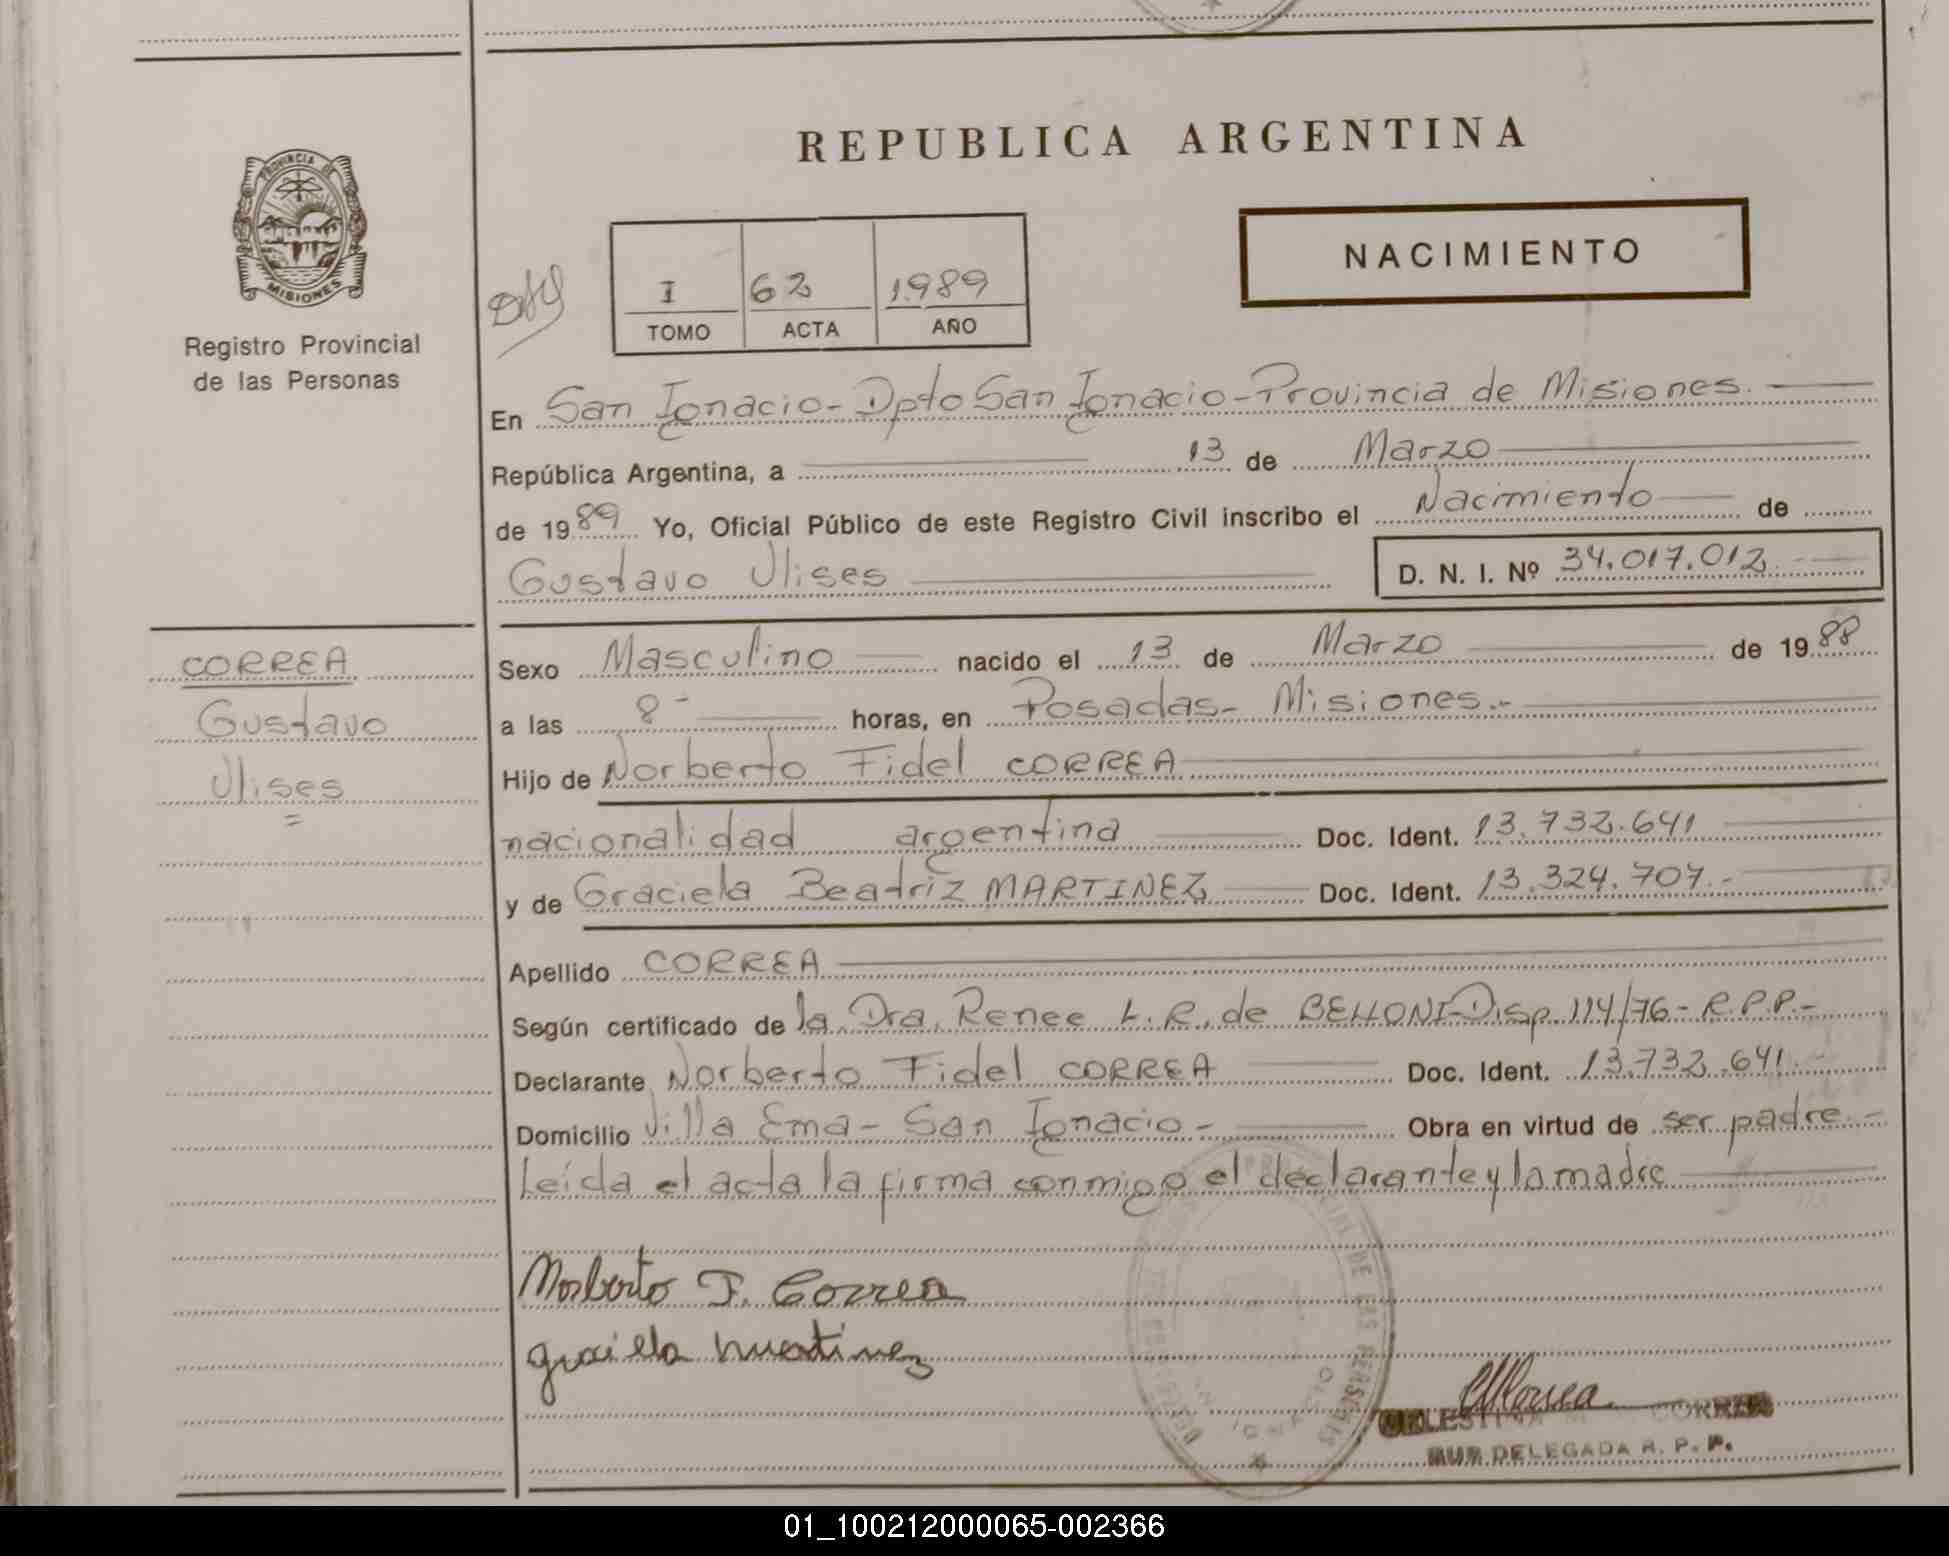 REPUBLICA ARGENTINA
PROVINCIA DE
MISIONES
Registro Provincial
de las Personas
I 62 1989
TOMO ACTA AÑO
NACIMIENTO
En San Ignacio - Dpto San Ignacio - Provincia de Misiones.
República Argentina, a 13 de Marzo
de 1989 Yo, Oficial Público de este Registro Civil inscribo el Nacimiento de
Gustavo Ulises D. N. I. Nº 34.017.012
CORREA
Gustavo
Ulises
Sexo Masculino nacido el 13 de Marzo de 1988
a las 8- horas, en Posadas - Misiones.-
Hijo de Norberto Fidel CORREA
nacionalidad argentina Doc. Ident. 13.732.641
y de Graciela Beatriz MARTINEZ Doc. Ident. 13.324.707.-
Apellido CORREA
Según certificado de la Dra. Renee L. R. de BELLONI-Disp. 114/76 - R.P.P.-
Declarante Norberto Fidel CORREA Doc. Ident. 13.732.641.-
Domicilio Villa Ema - San Ignacio - Obra en virtud de ser padre.-
Leída el acta la firma conmigo el declarante y la madre
Norberto F. Correa
graciela martinez
CELESTINA CORREA
DELEGADA R. P. P.
01_100212000065-002366